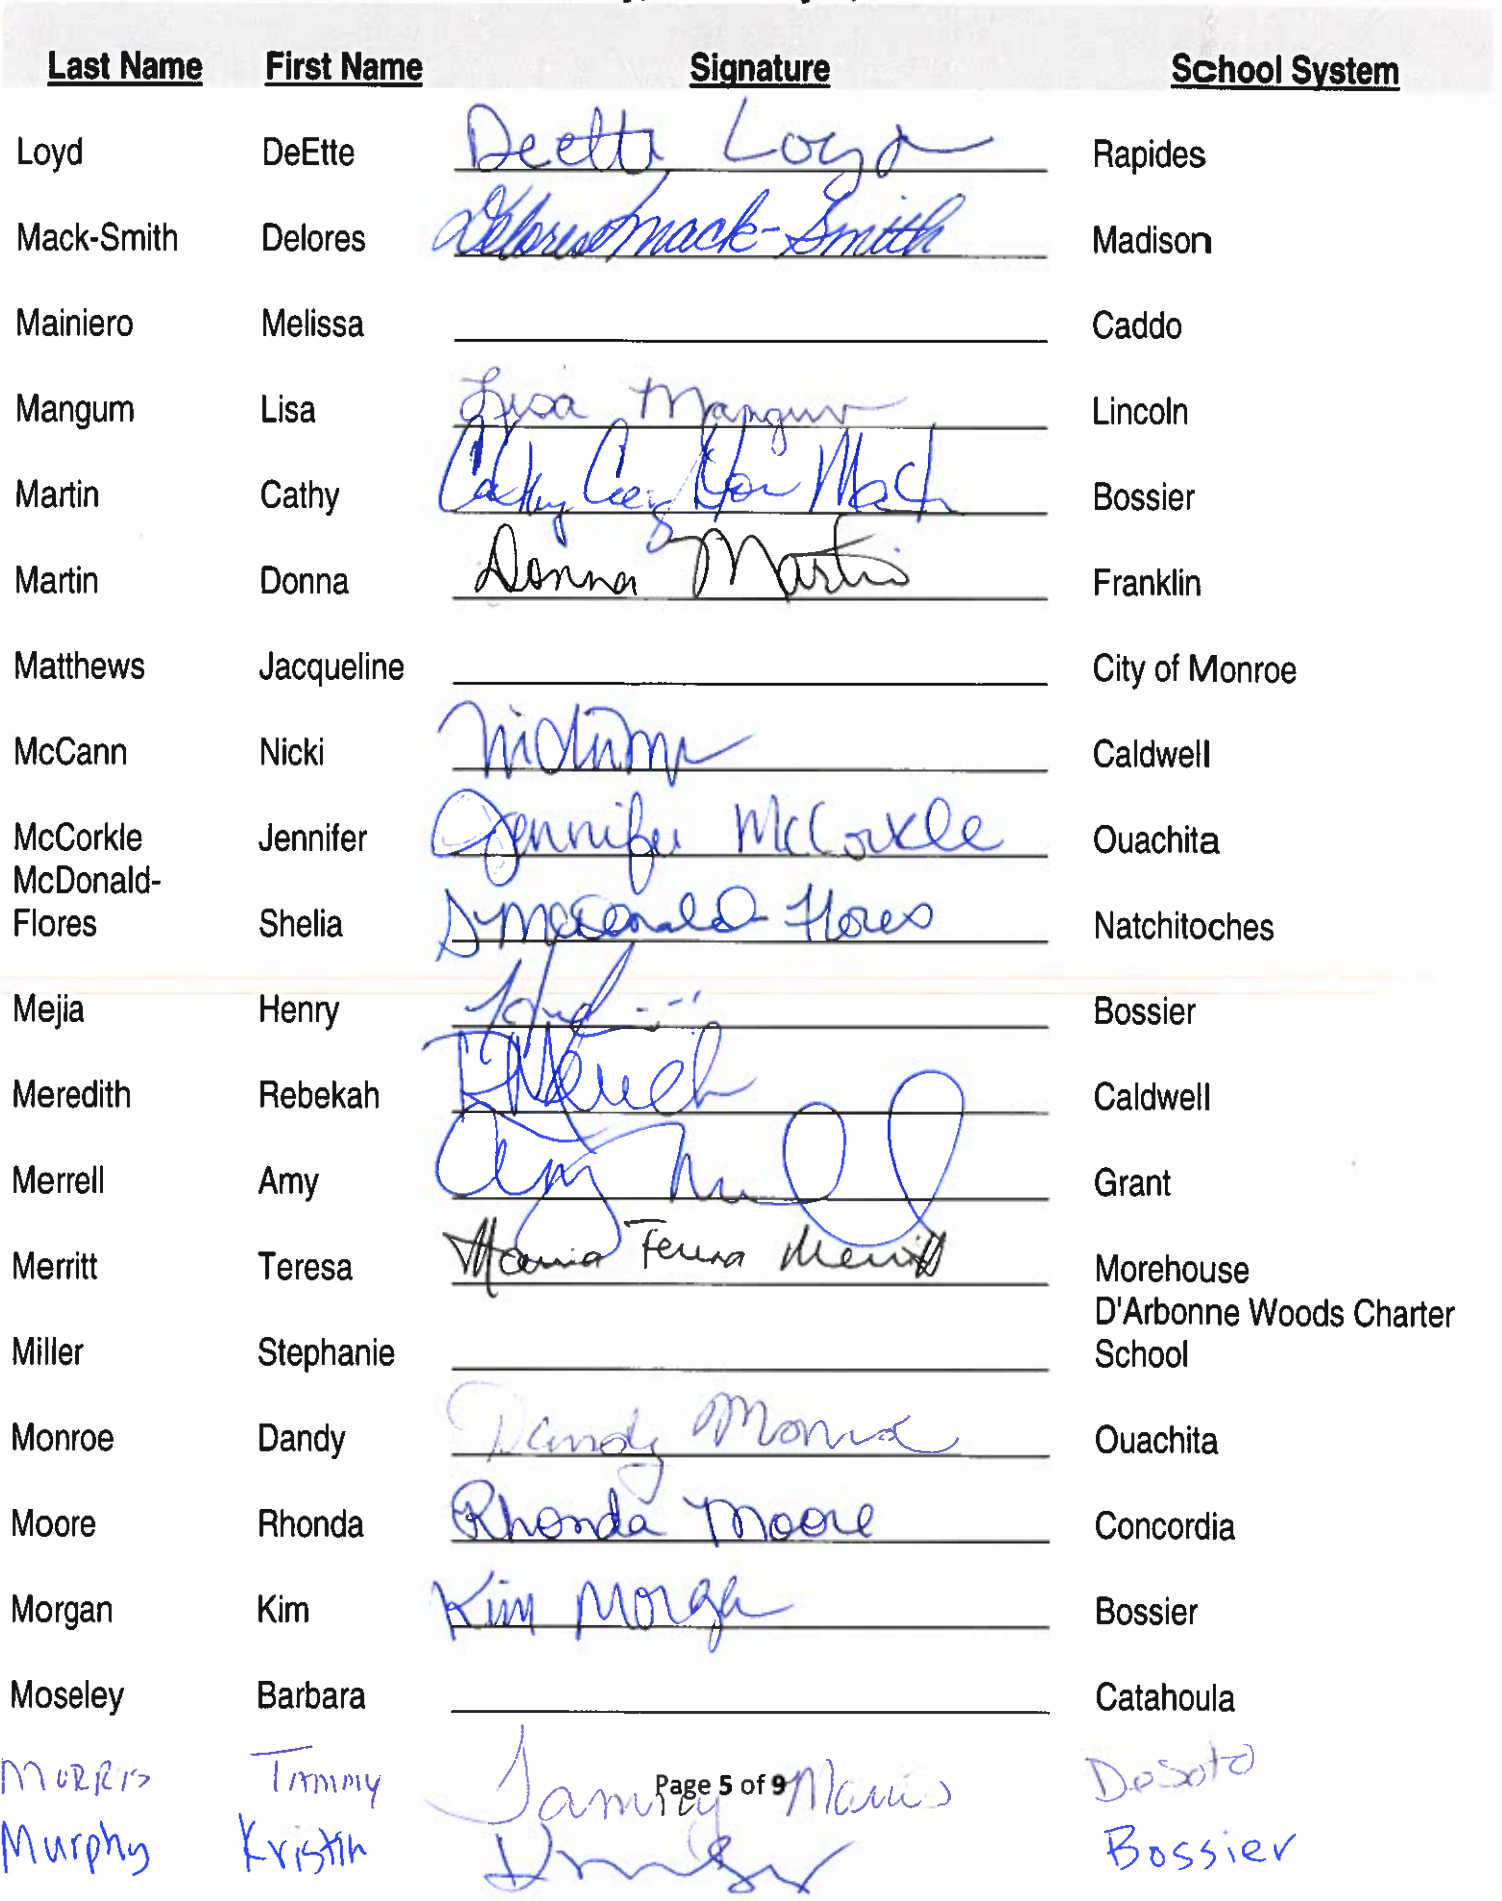 Last Name First Name Signature School System
Loyd DeEtte Deette Loyd Rapides
Mack-Smith Delores Delores Mack-Smith Madison
Mainiero Melissa Caddo
Mangum Lisa Lisa Mangum Lincoln
Martin Cathy Cathy Bossier
Martin Donna Donna Martin Franklin
Matthews Jacqueline City of Monroe
McCann Nicki Caldwell
McCorkle Jennifer Jennifer McCorkle Ouachita
McDonald-
Flores Shelia S McDonald-Flores Natchitoches
Mejia Henry Bossier
Meredith Rebekah Caldwell
Merrell Amy Amy Merrell Grant
Merritt Teresa Maria Teresa Merritt Morehouse
D'Arbonne Woods Charter
Miller Stephanie School
Monroe Dandy Dandy Monroe Ouachita
Moore Rhonda Rhonda Moore Concordia
Morgan Kim Kim Morgan Bossier
Moseley Barbara Catahoula
MORRIS TAMMY Tammy Morris DeSoto
Page 5 of 9
Murphy Kristin Bossier